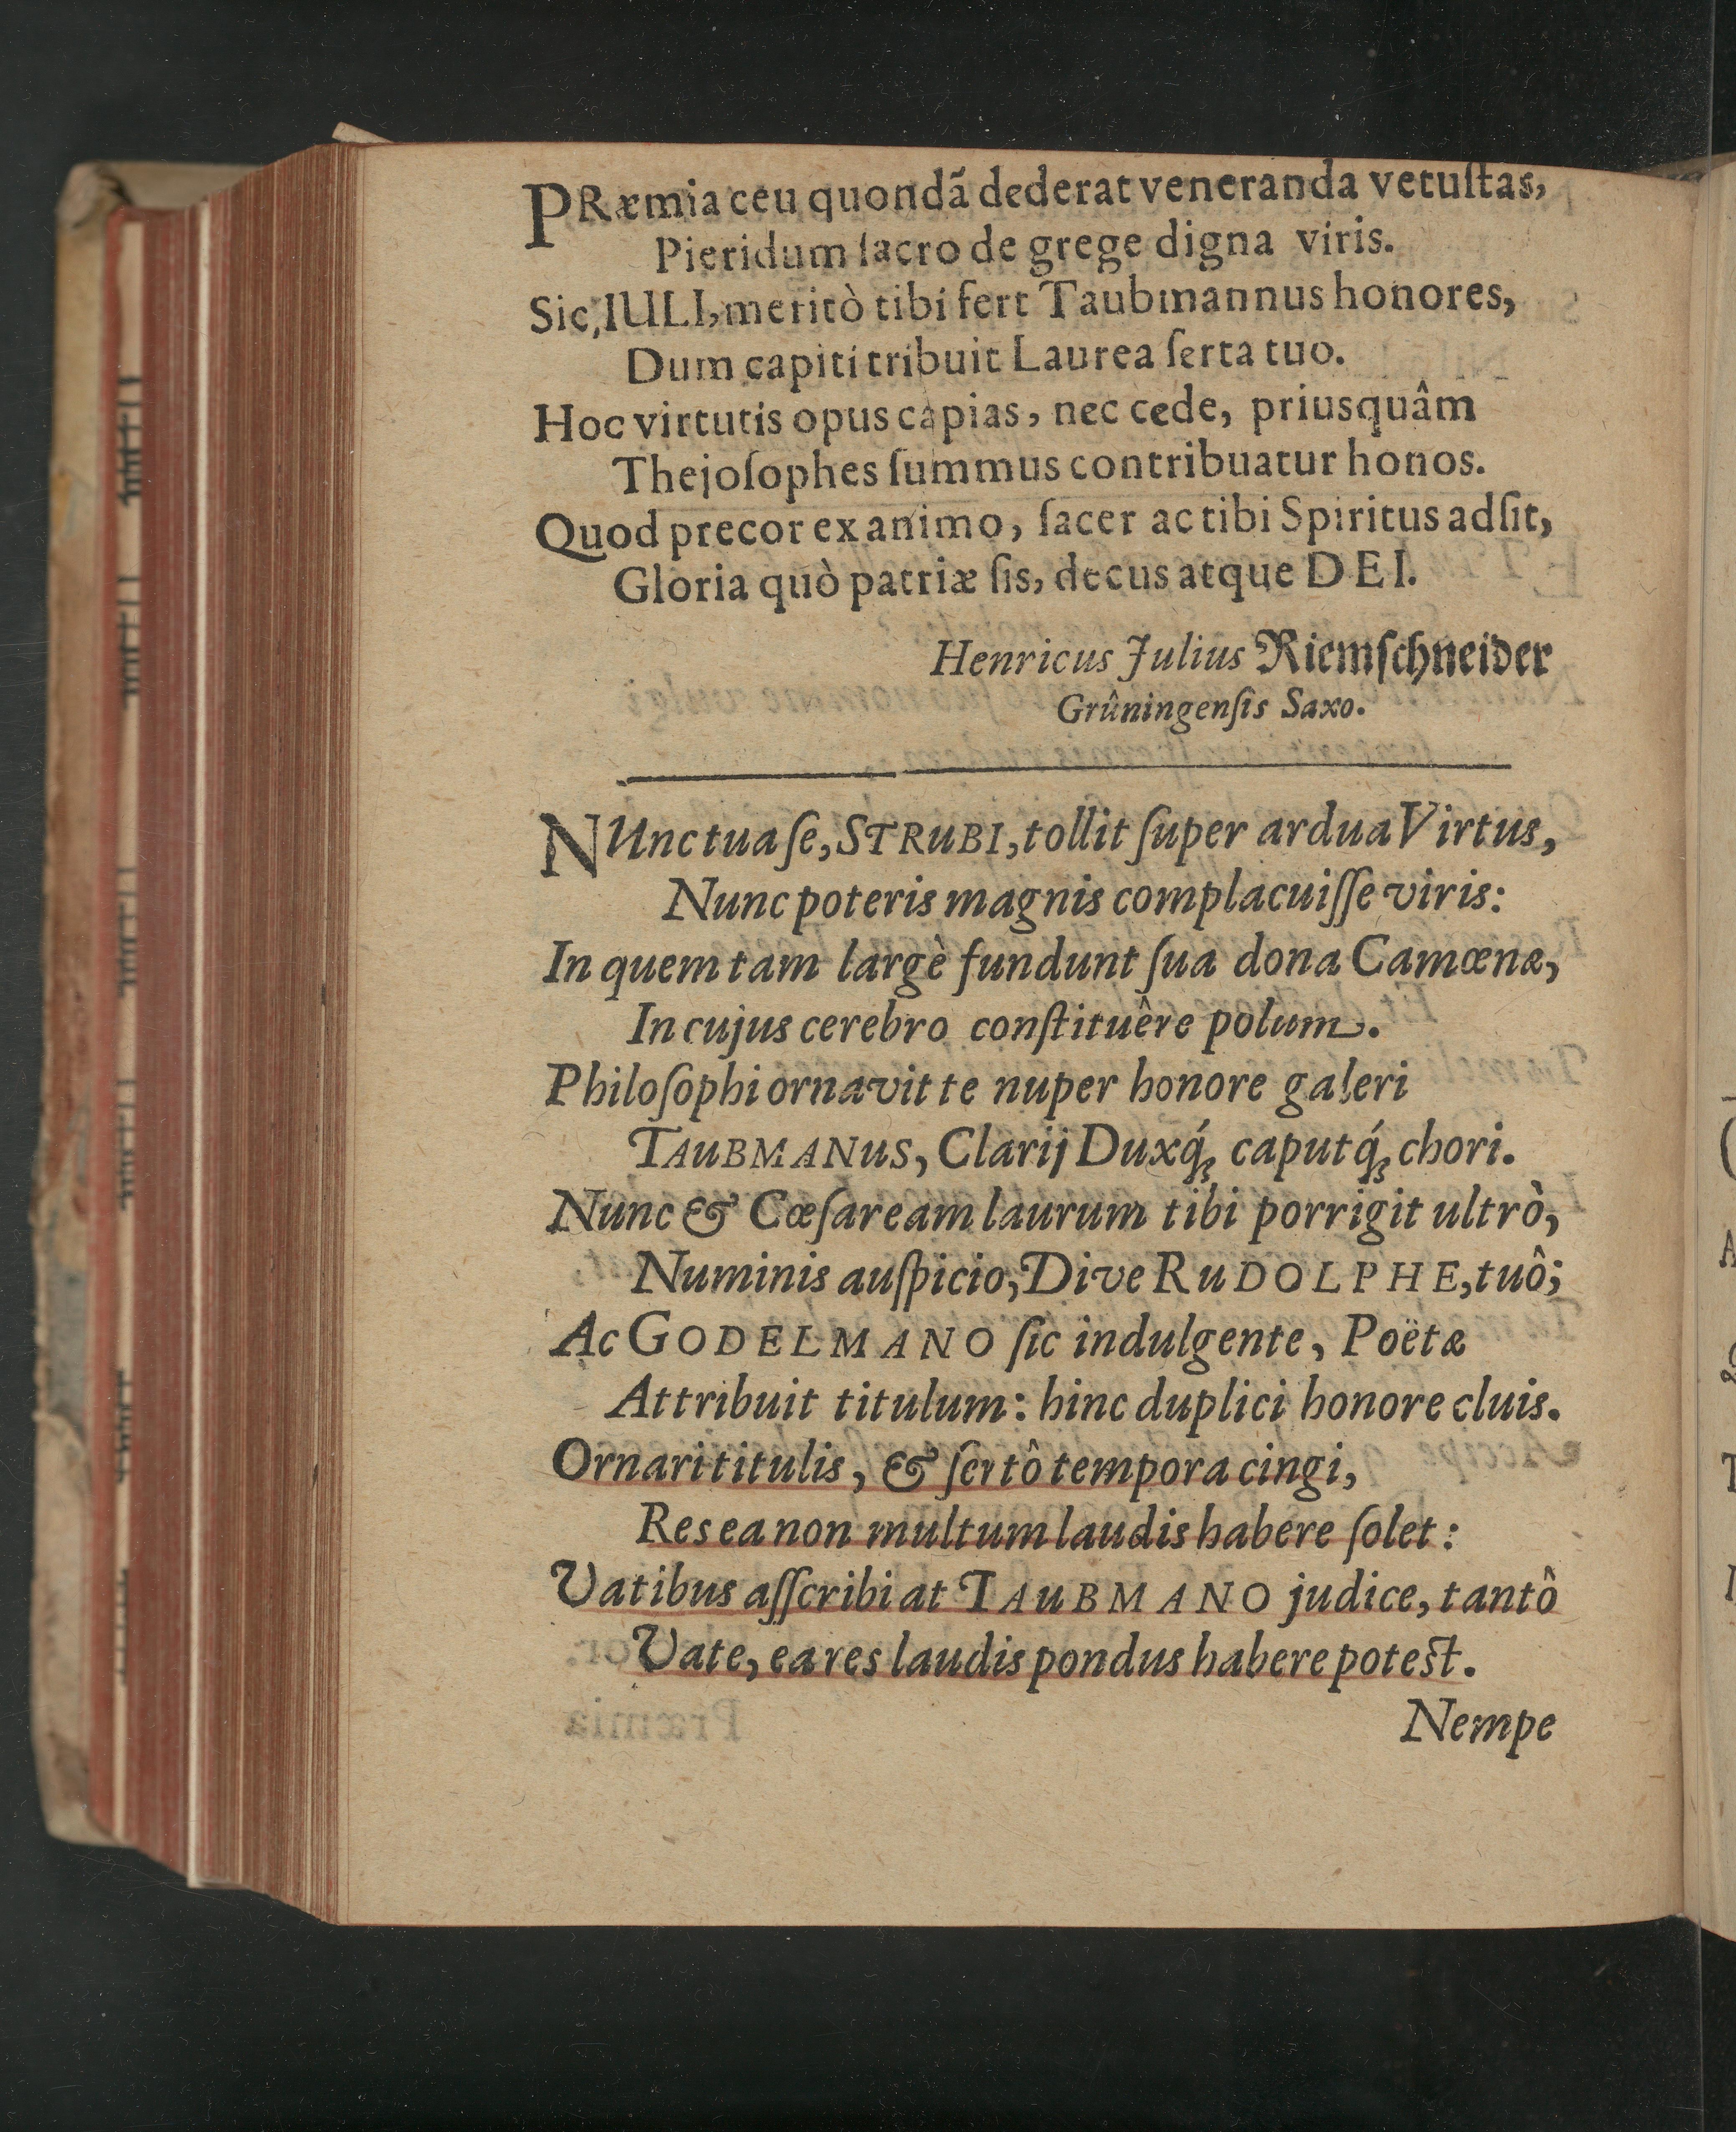 PRæmia ceu quondã dederat veneranda vetuſtas,
Pieridum ſacro de grege digna viris.
Sic, IULI, meritò tibi fert Taubmannus honores,
Dum capiti tribuit Laurea ſerta tuo.
Hoc virtutis opus capias, nec cede, priusquâm
Thejoſophes ſummus contribuatur honos.
Quod precor ex animo, ſacer ac tibi Spiritus adſit,
Gloria quò patriæ ſis, decus atque DEI.
Henricus Julius Riemſchneider
Grûningenſis Saxo.
NUnc tua ſe, STRUBI, tollit ſuper ardua Virtus,
Nunc poteris magnis complacuiſſe viris:
In quem tam largè fundunt ſua dona Camœnæ,
In cujus cerebro conſtituêre polum.
Philoſophi ornavit te nuper honore galeri
TAUBMANUS, Clarij Duxq́ꝫ caputq́ꝫ chori.
Nunc & Cœſaream laurum tibi porrigit ultrò,
Numinis auſpicio, Dive RUDOLPHE, tuô;
Ac GODELMANO ſic indulgente, Poëtæ
Attribuit titulum: hinc duplici honore cluis.
Ornari titulis, & ſertô tempora cingi,
Res ea non multum laudis habere ſolet:
Vatibus aſſcribi at TAUBMANO judice, tantô
Vate, ea res laudis pondus habere poteſt.
Nempe